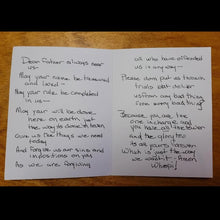 Dear Father always near
us
May your name be treasured
and loved -
May your rule be completed
in us —
May your will be done
here on earth just
the way its done in heaven
Give us the things we need
today
And forgive us our sins
and
on you
As we are forgiving
all who have offended
us in any way -
Please dont put us through
trials but deliver
us from any bad thing
Because you are the
one in charge and
you have all the power
and the glory too
its all yours forever
Which is just the way
we want it - Amen